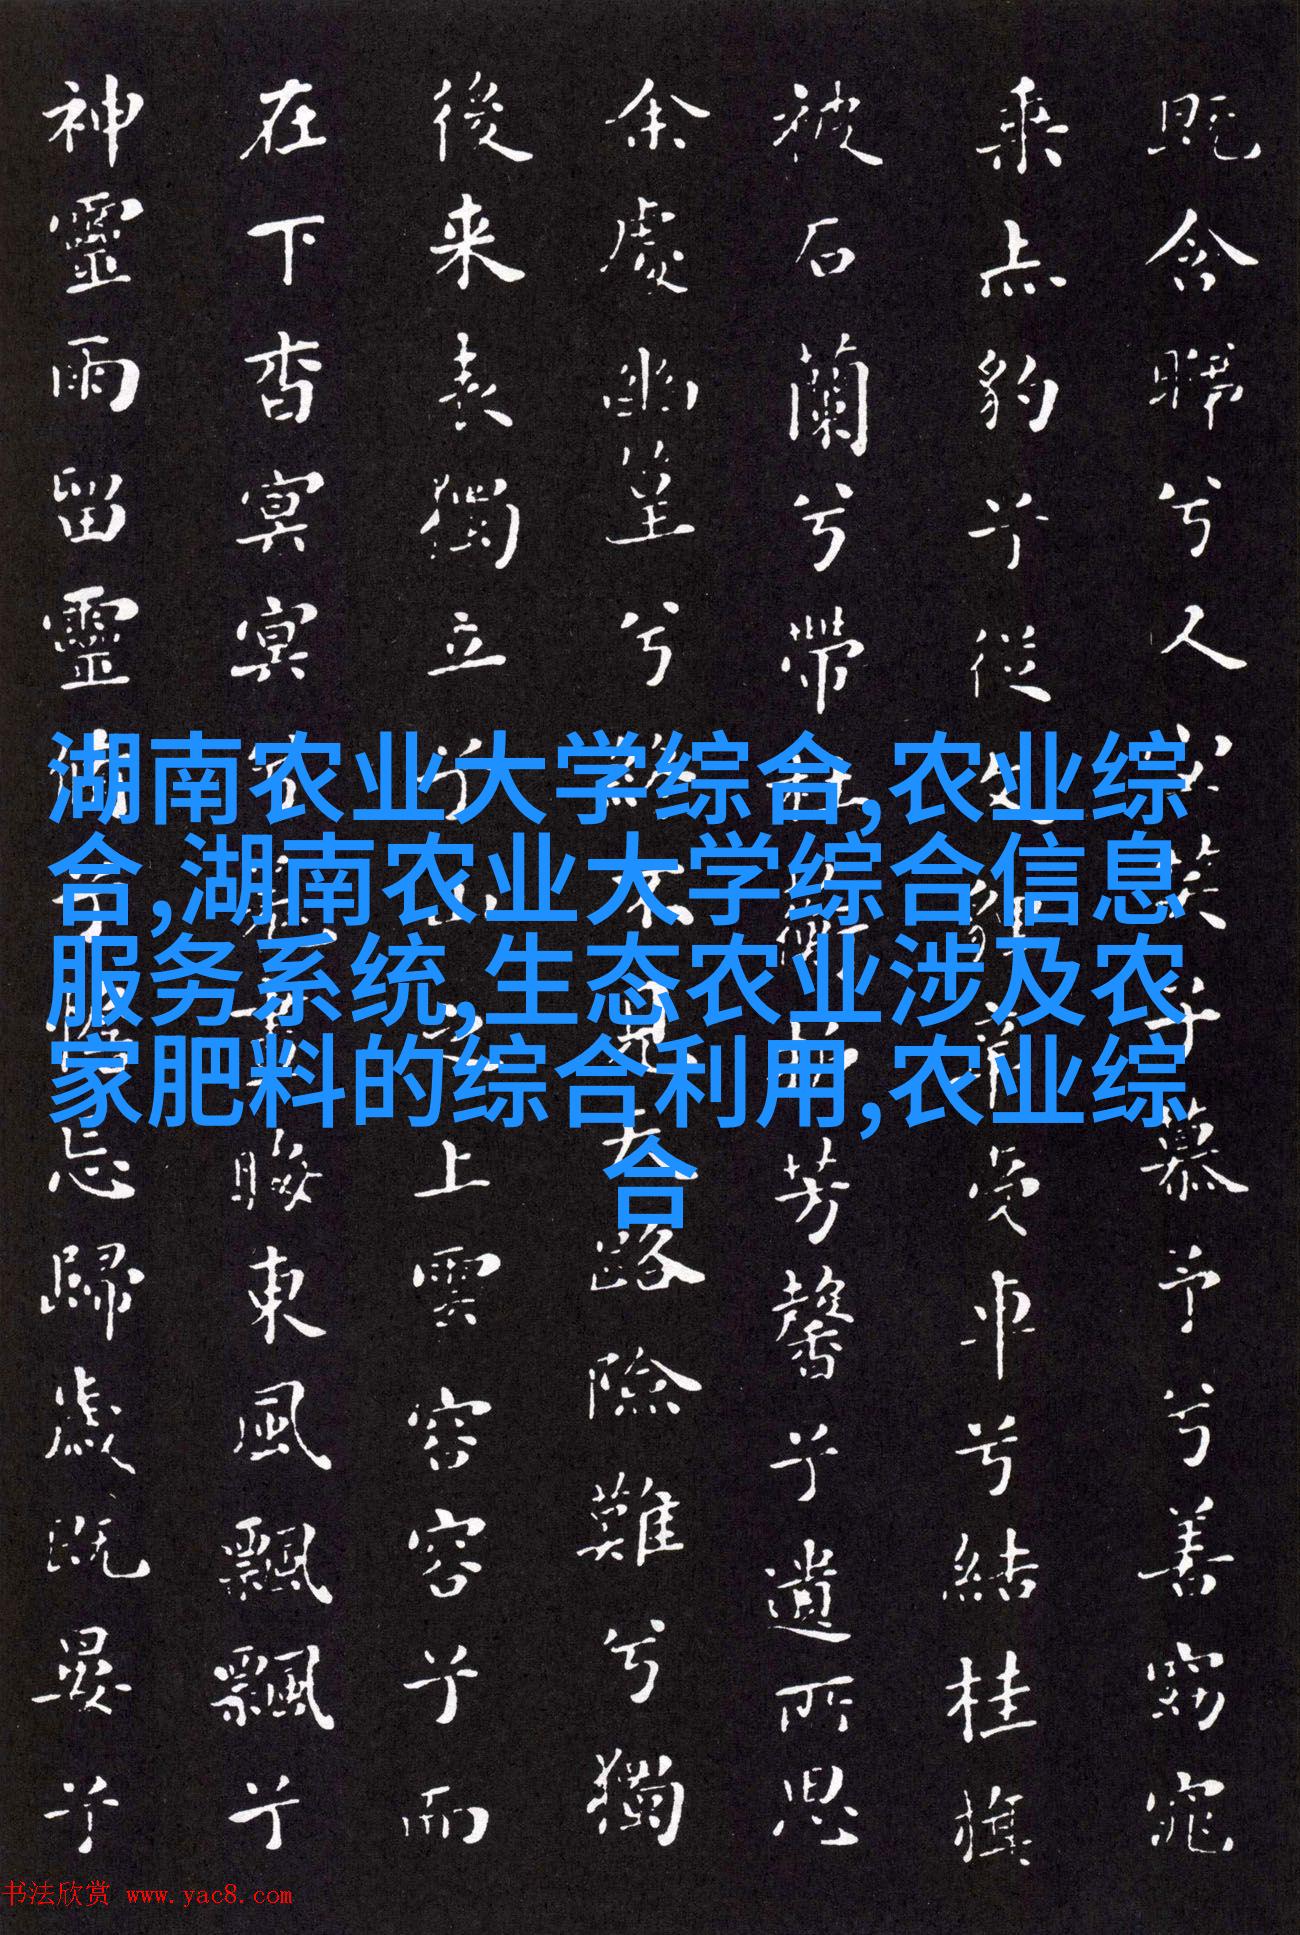 既含睇兮又宜笑子慕予兮善窈窕
乘赤豹兮從文貍辛夷車兮結桂旗
被石蘭兮帶杜蘅折芳馨兮遺所思
余處幽篁兮終不見天路險難兮獨
後来表獨立兮山之上雲容容兮而
在下杳冥冥兮羌晝晦東風飄飄兮
神靈雨留靈脩兮憺忘歸歲既晏兮
湖南农业大学综合,农业综
合,湖南农业大学综合信息
服务系统,生态农业涉及农
家肥料的综合利用,农业综
合
书法欣赏 www.yac8.com